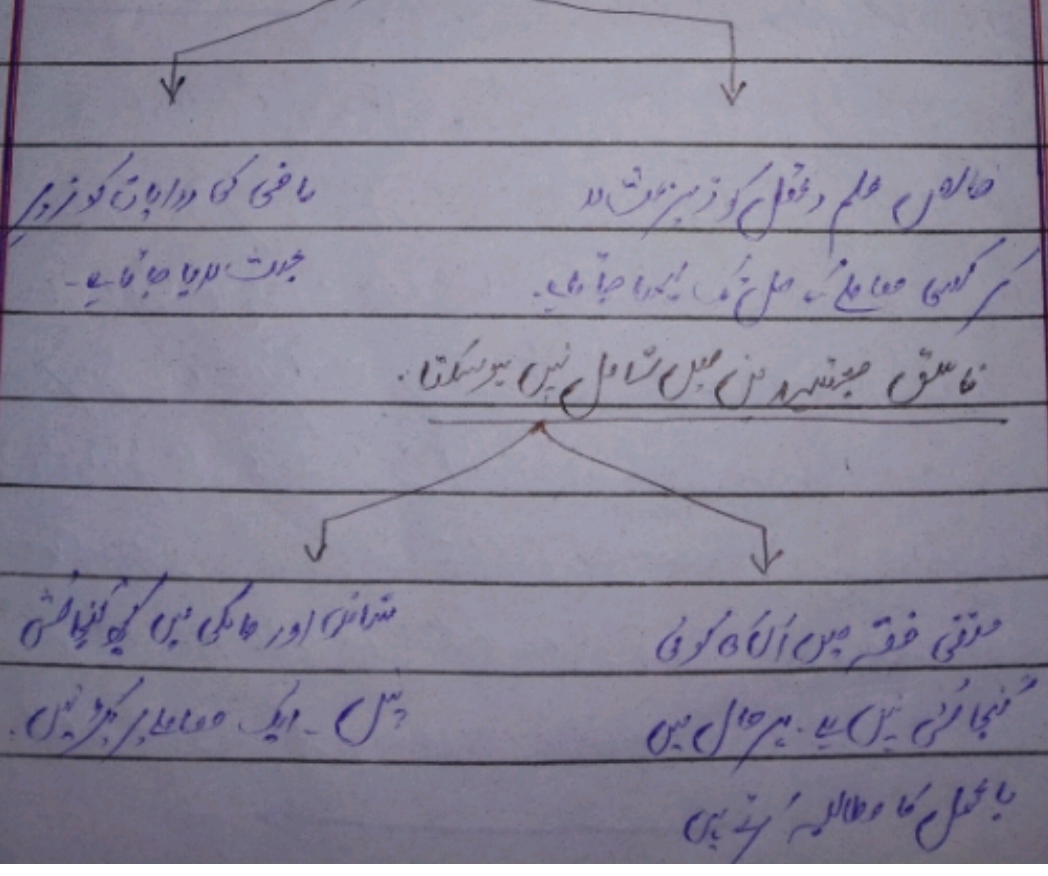 خالص علم و عقل کو زیر بحث لا
کر کسی معاملے کے حل تک پہنچا جاتا ہے۔
ماضی کی روایات کو زیر
بحث لایا جاتا ہے۔
فاسق مجتہدین میں شامل نہیں ہو سکتا۔
حنفی فقہ میں اس کی کوئی
گنجائش نہیں ہے۔ ہر حال میں
باعمل کا مطالبہ کرتے ہیں
شافعی اور مالکی میں کچھ گنجائش
ہیں۔ ایک معاملے پر نہیں۔